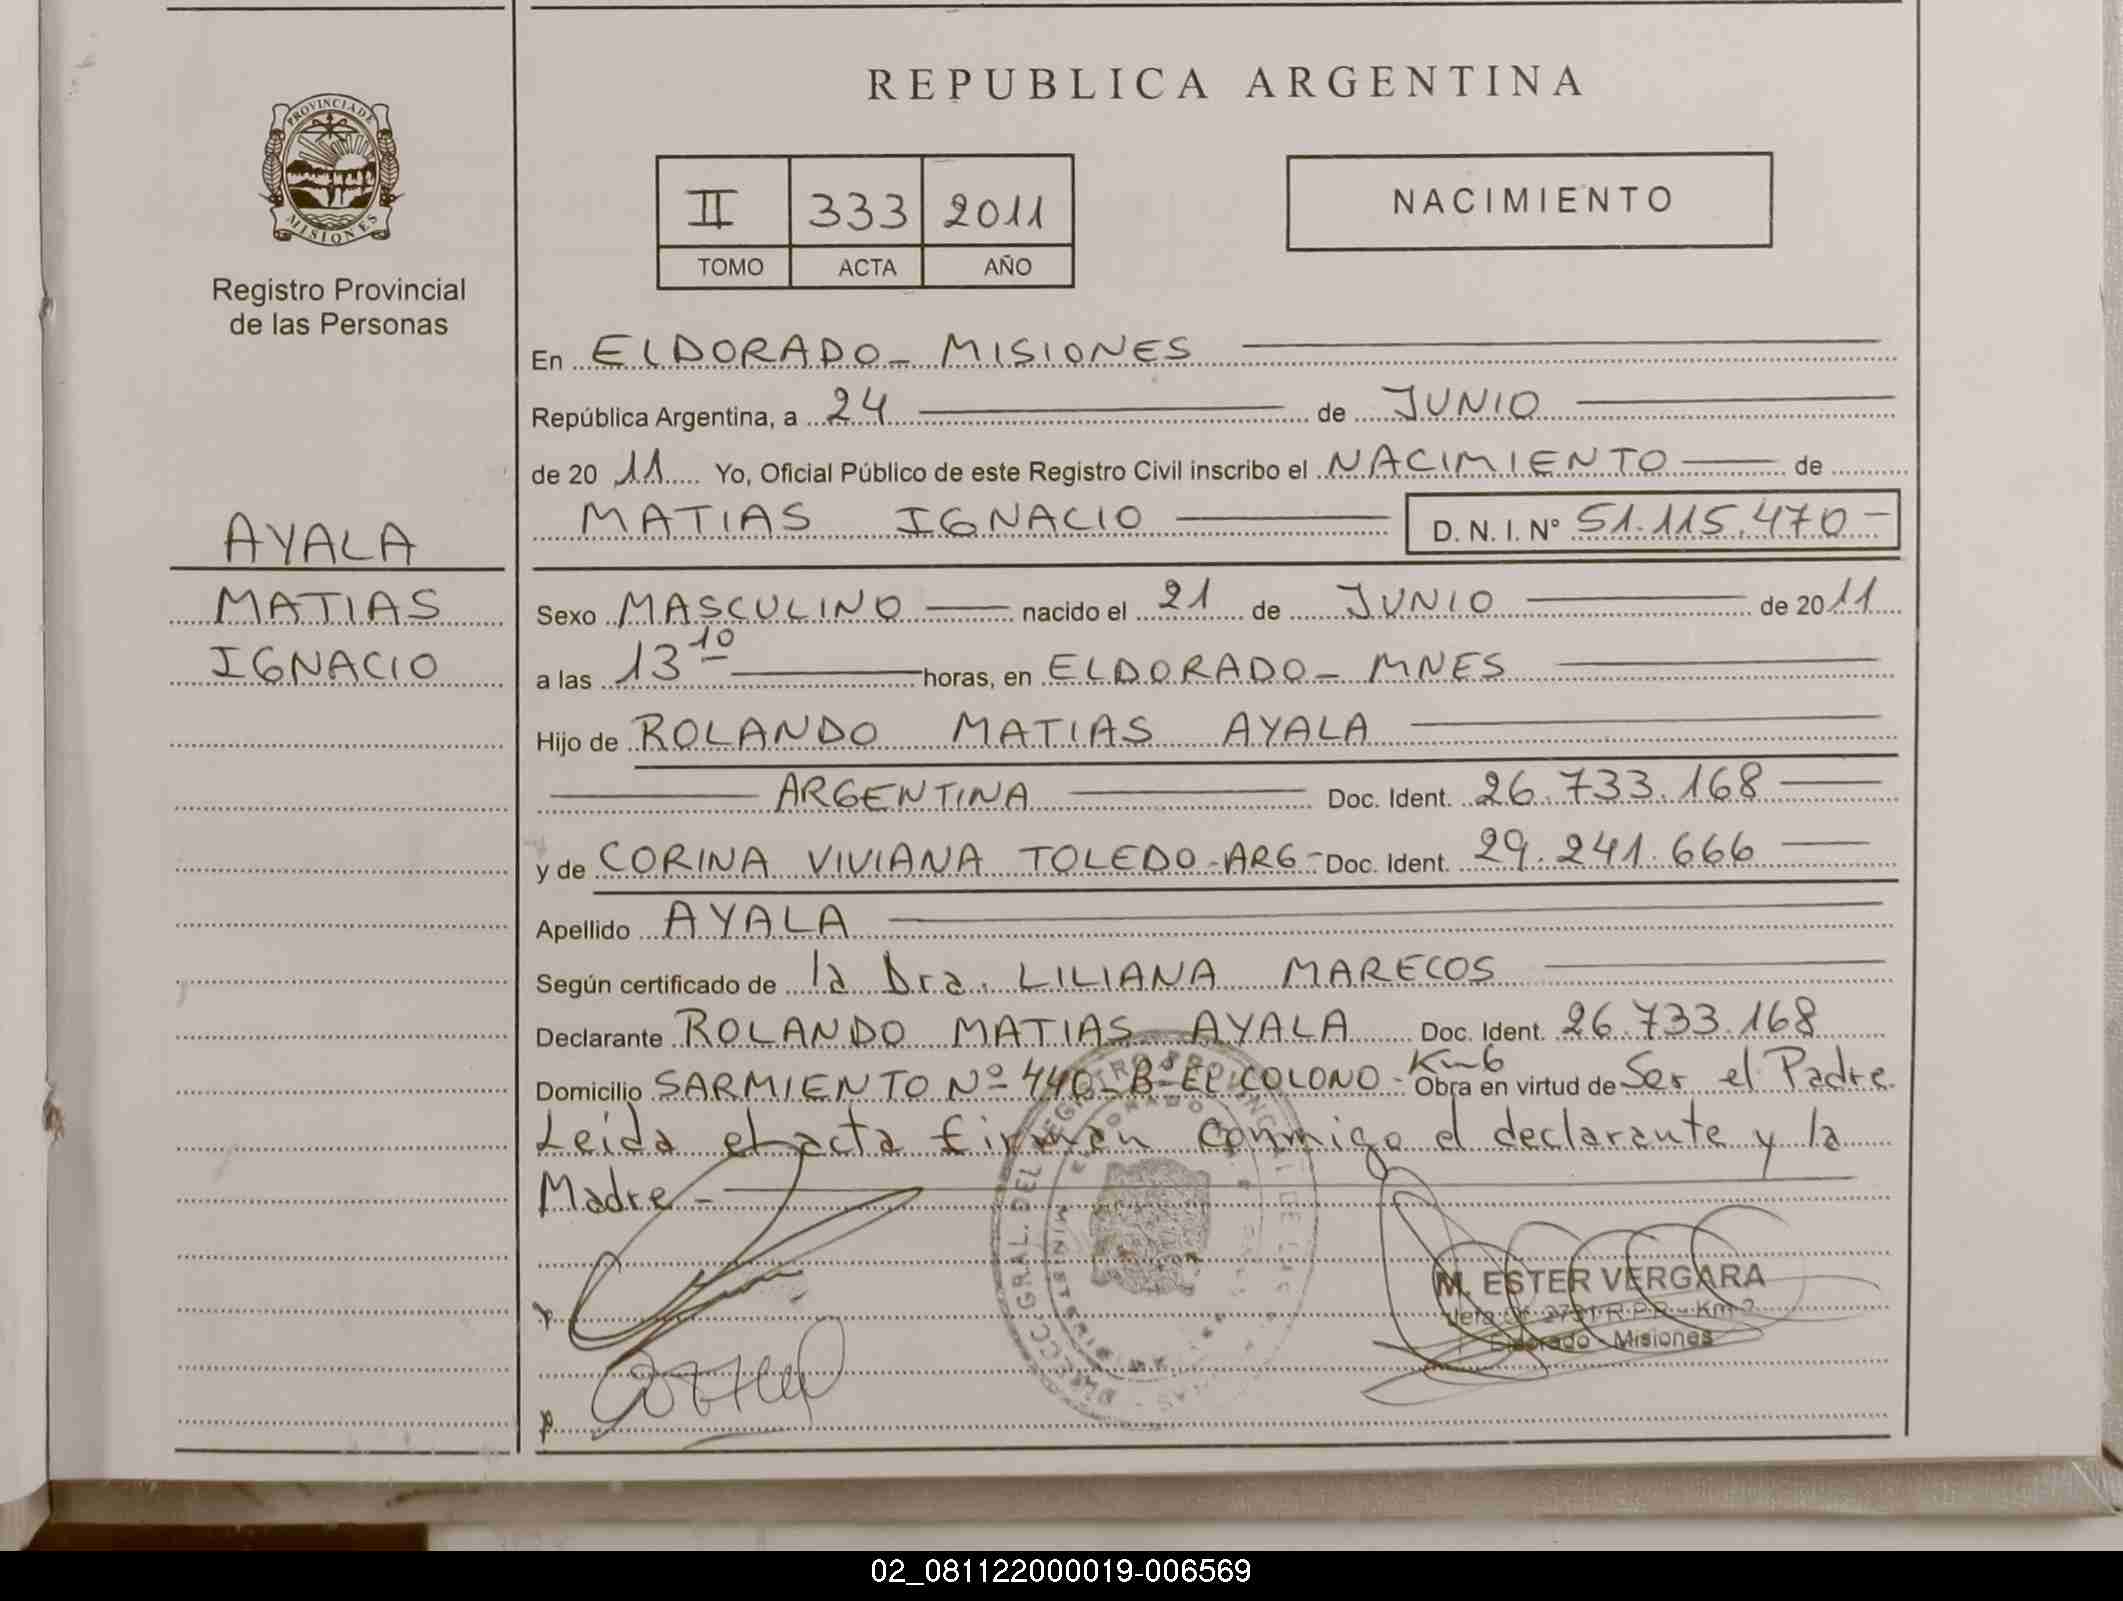 REPUBLICA ARGENTINA
PROVINCIA DE
MISIONES
Registro Provincial
de las Personas
II 333 2011
TOMO ACTA AÑO
NACIMIENTO
En ELDORADO - MISIONES
República Argentina, a 24 de JUNIO
de 20 11 Yo, Oficial Público de este Registro Civil inscribo el NACIMIENTO de
MATIAS IGNACIO D. N. I. Nº 51.115.470-
AYALA
MATIAS
IGNACIO
Sexo MASCULINO nacido el 21 de JUNIO de 20 11
a las 13 10 horas, en ELDORADO - MNES
Hijo de ROLANDO MATIAS AYALA
ARGENTINA Doc. Ident. 26.733.168
y de CORINA VIVIANA TOLEDO - ARG - Doc. Ident. 29.241.666
Apellido AYALA
Según certificado de la Dra. LILIANA MARECOS
Declarante ROLANDO MATIAS AYALA Doc. Ident. 26.733.168
Domicilio SARMIENTO Nº 440 - Bº EL COLONO - Km 6 Obra en virtud de Ser el Padre
Leida el acta firman conmigo el declarante y la
Madre -
M. ESTER VERGARA
Jefa Of. 2731 R.P.P. - Km 2
Eldorado - Misiones
02_081122000019-006569